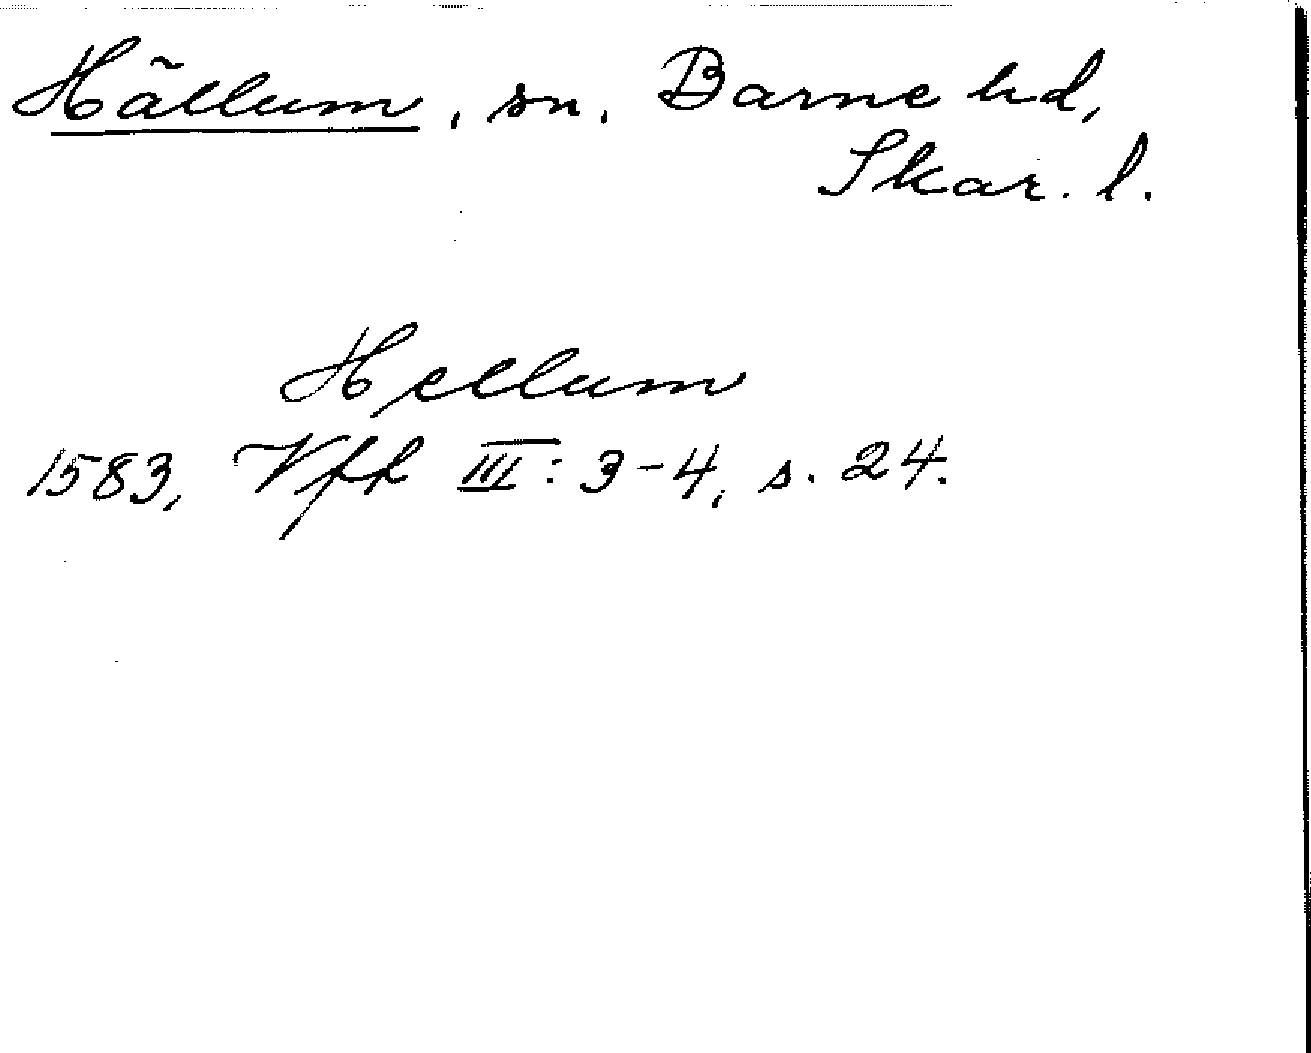 Hällum, sn. Barne hd,
Skar. l.
Hellum
1583, Vfk III: 3-4, s. 24.